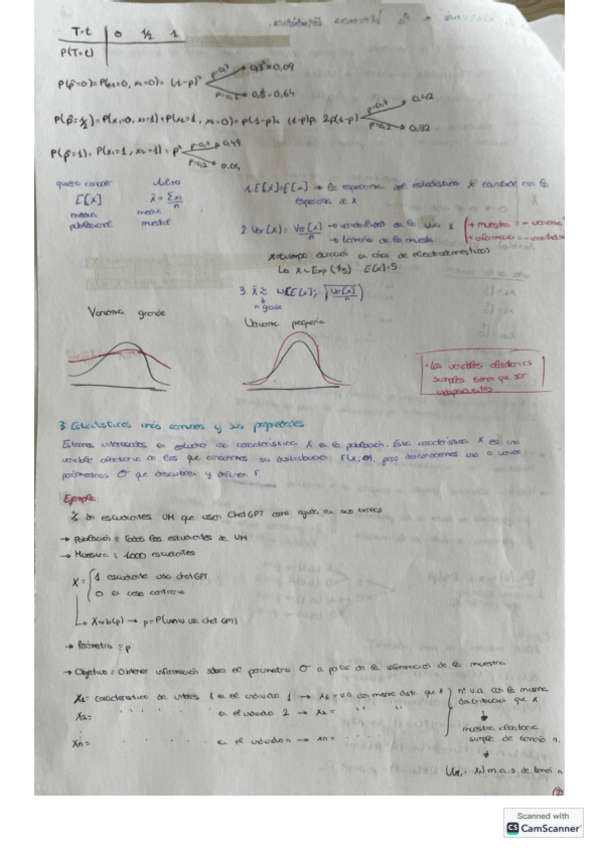 T=t 0 1/2 1
P(T=t)
P(p̂=0)=P(x1=0, x2=0)= (1-p)² p=0,7 0,3²=0,09
p=0,2 0,8²=0,64
P(p̂=1/2)=P(x1=0, x2=1)+P(x1=1, x2=0)= p(1-p)+ (1-p)p= 2p(1-p) p=0,7 0,42
p=0,2 0,32
P(p̂=1)= P(x1=1, x2=1)= p² p=0,7 0,49
p=0,2 0,04
quiero conocer
E[X] x̄ = Σxi/n
media media
poblacional muestral
1. E[x̄]=E[x] → la esperanza del estadístico x̄ coincide con la
esperanza de X
2. Var[x̄] = Var[x]/n → variabilidad de la v.a. X
→ tamaño de la muestra
+ muestra = - varianza
+ información =
X=tiempo duración en días de electrodomésticos
Lo X~Exp(1/5) E[X]=5
3. x̄ ≈ N(E[x]; √Var[x]/n)
n grande
Varianza grande
Varianza pequeña
• Las variables aleatorias
simples tienen que ser
independientes
3 Estadísticos más comunes y sus propiedades
Estamos interesados en estudiar la característica X en la población. Esta característica X es una
variable aleatoria de la que conocemos su distribución F(x;θ), pero desconocemos uno o varios
parámetros θ que describen y definen F.
Ejemplo
% de estudiantes UM que usan ChatGPT como ayuda en sus tareas
→ Población = Todos los estudiantes de UM
→ Muestra = 1000 estudiantes
X = 1 estudiante usa chatGPT
0 en caso contrario
X~b(p) → p=P(UM usa chat GPT)
→ Parámetro = p
→ Objetivo: Obtener información sobre el parámetro θ a partir de la información de la muestra
X1= característica de interés en el individuo 1 → x1=v.a. con misma distr. que X
X2= " " " " en el individuo 2 → x2= " "
Xn= " " " " en el individuo n → xn= " "
nº v.a con la misma
distribución que X
muestra aleatoria
simple de tamaño n.
(X1,..Xn) m.a.s de tamaño n
Scanned with
CS CamScanner